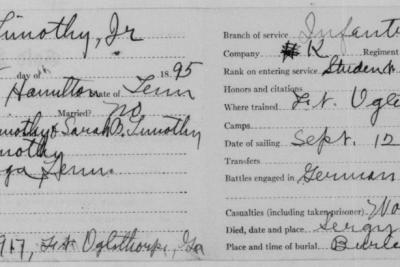 Timothy, Jr
day of 1895
Hamilton State of Tenn
Married? No
Timothy & Sarah D. Timothy
Tenn.
1917, Ft Oglethorpe, Ga
Branch of service Infant
Company K Regiment
Rank on entering service Student
Honors and citations
Where trained Ft. Ogl
Camps
Date of sailing Sept. 12
Transfers
Battles engaged in German
Casualties (including taken prisoner) Wo
Died, date and place Sergy
Place and time of burial Buri